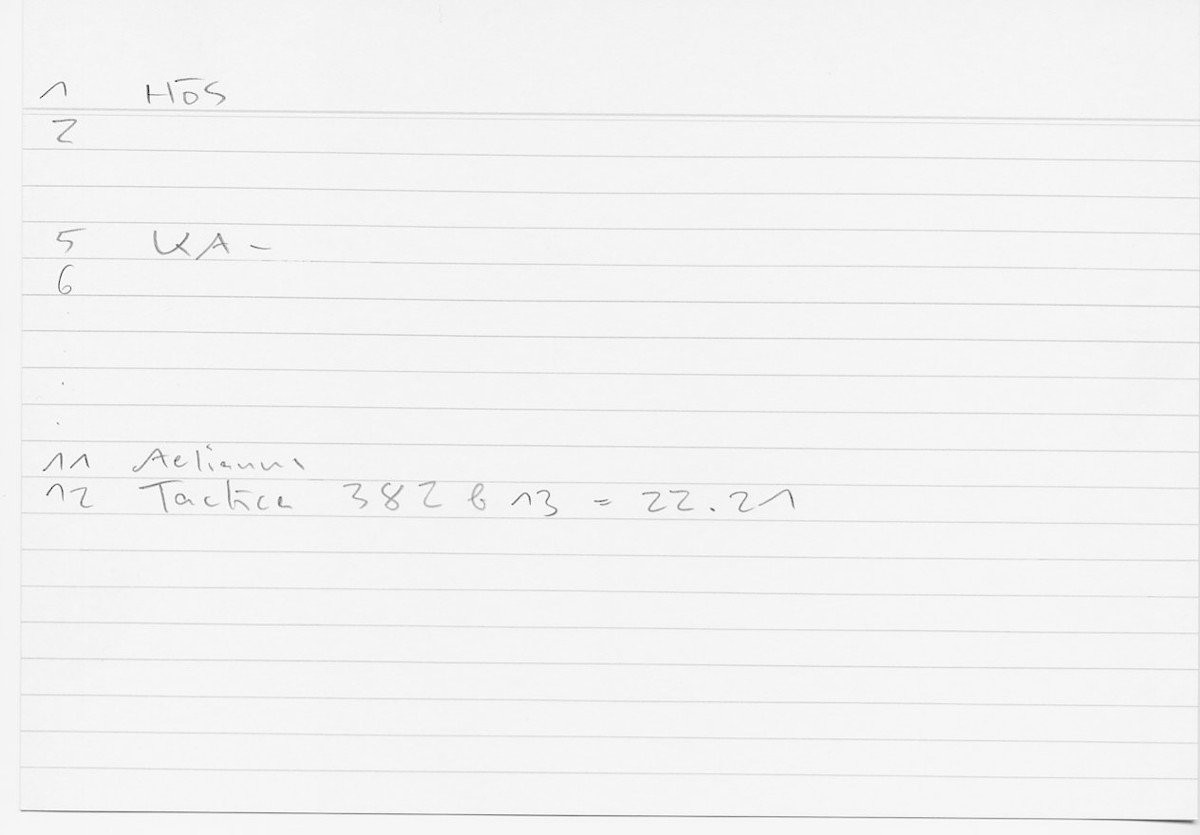 1 HōS
2
5 KA -
6
.
.
11 Aelianus
12 Tactica 382 b 13 = 22.21